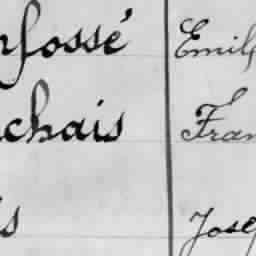 nfossé Emil
chais Fran
is Jose